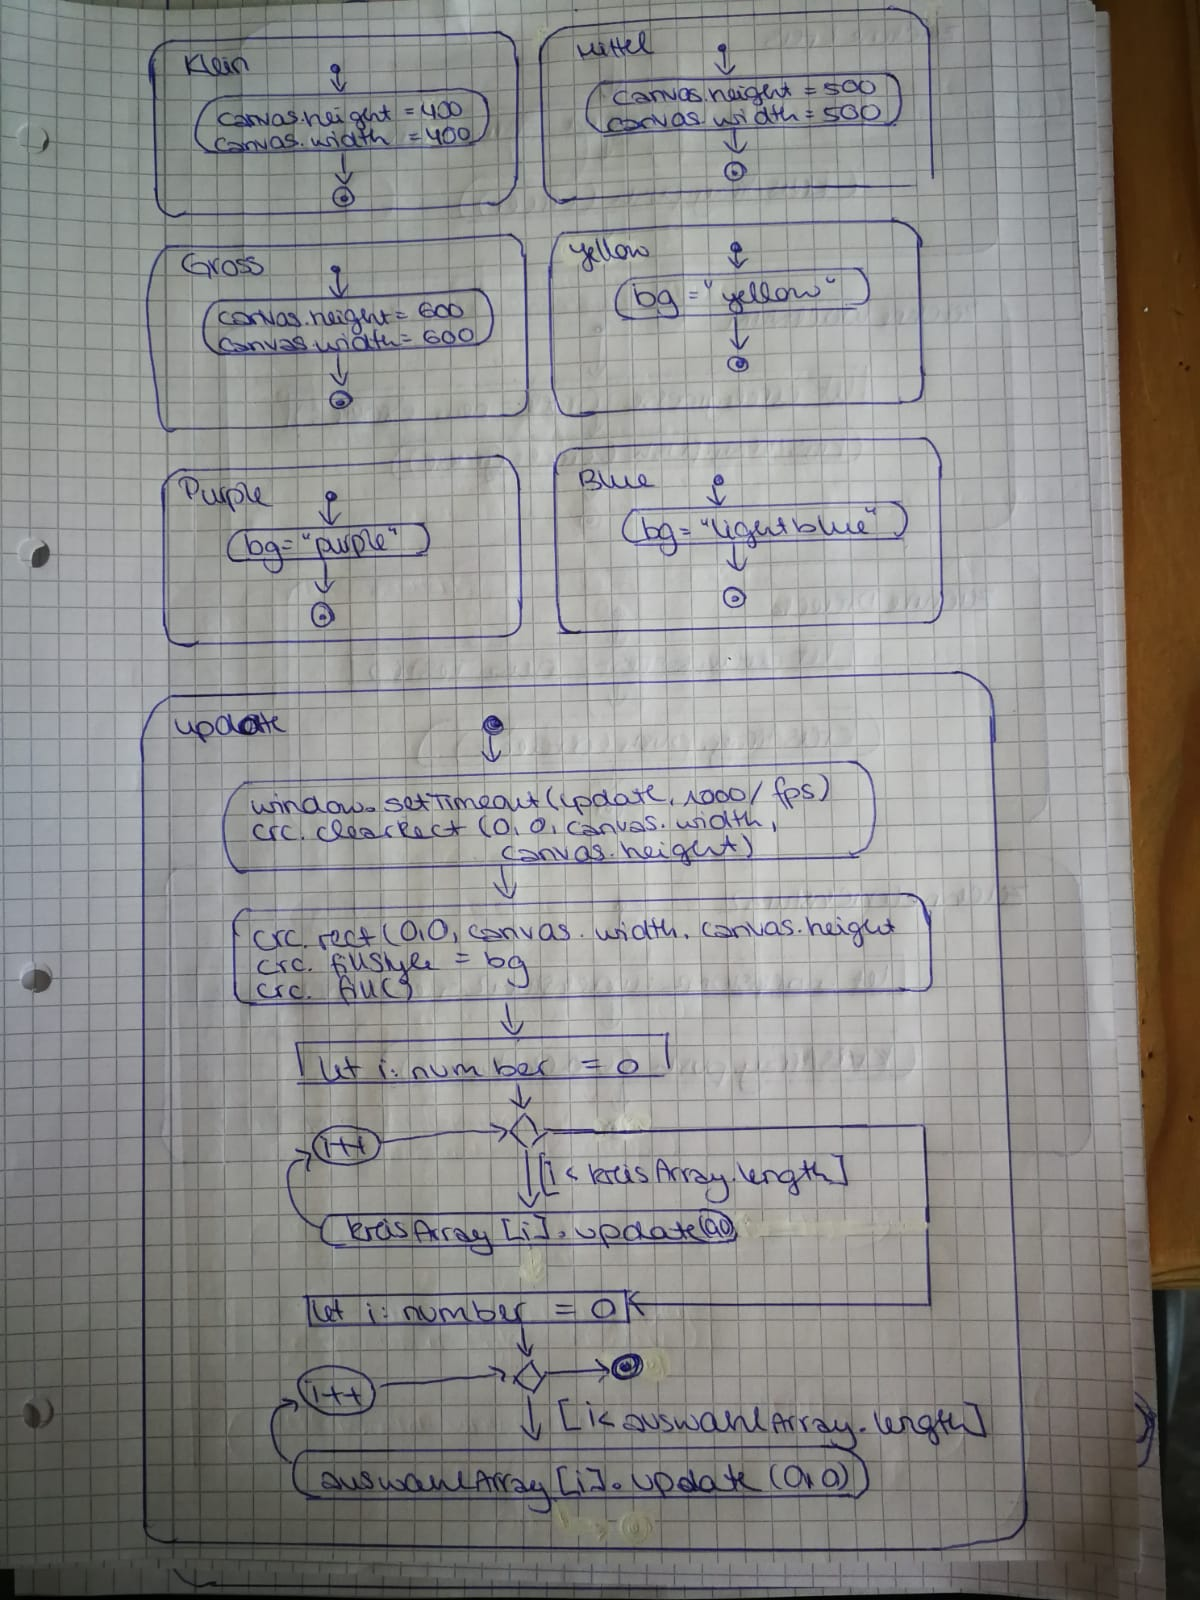 Klein
canvas.height = 400
canvas.width = 400
Mittel
canvas.height = 500
canvas.width = 500
Gross
canvas.height = 600
canvas.width = 600
yellow
bg = "yellow"
Purple
bg = "purple"
Blue
bg = "lightblue"
update
window.setTimeout(update, 1000/fps)
crc.clearRect (0, 0, canvas.width,
canvas.height)
crc.rect (0,0, canvas.width, canvas.height
crc.fillStyle = bg
crc.fill()
let i: number = 0
i++
[i < kreisArray.length]
kreisArray [i].update(0,0)
let i: number = 0
i++
[i < auswahlArray.length]
auswahlArray [i].update (0,0)